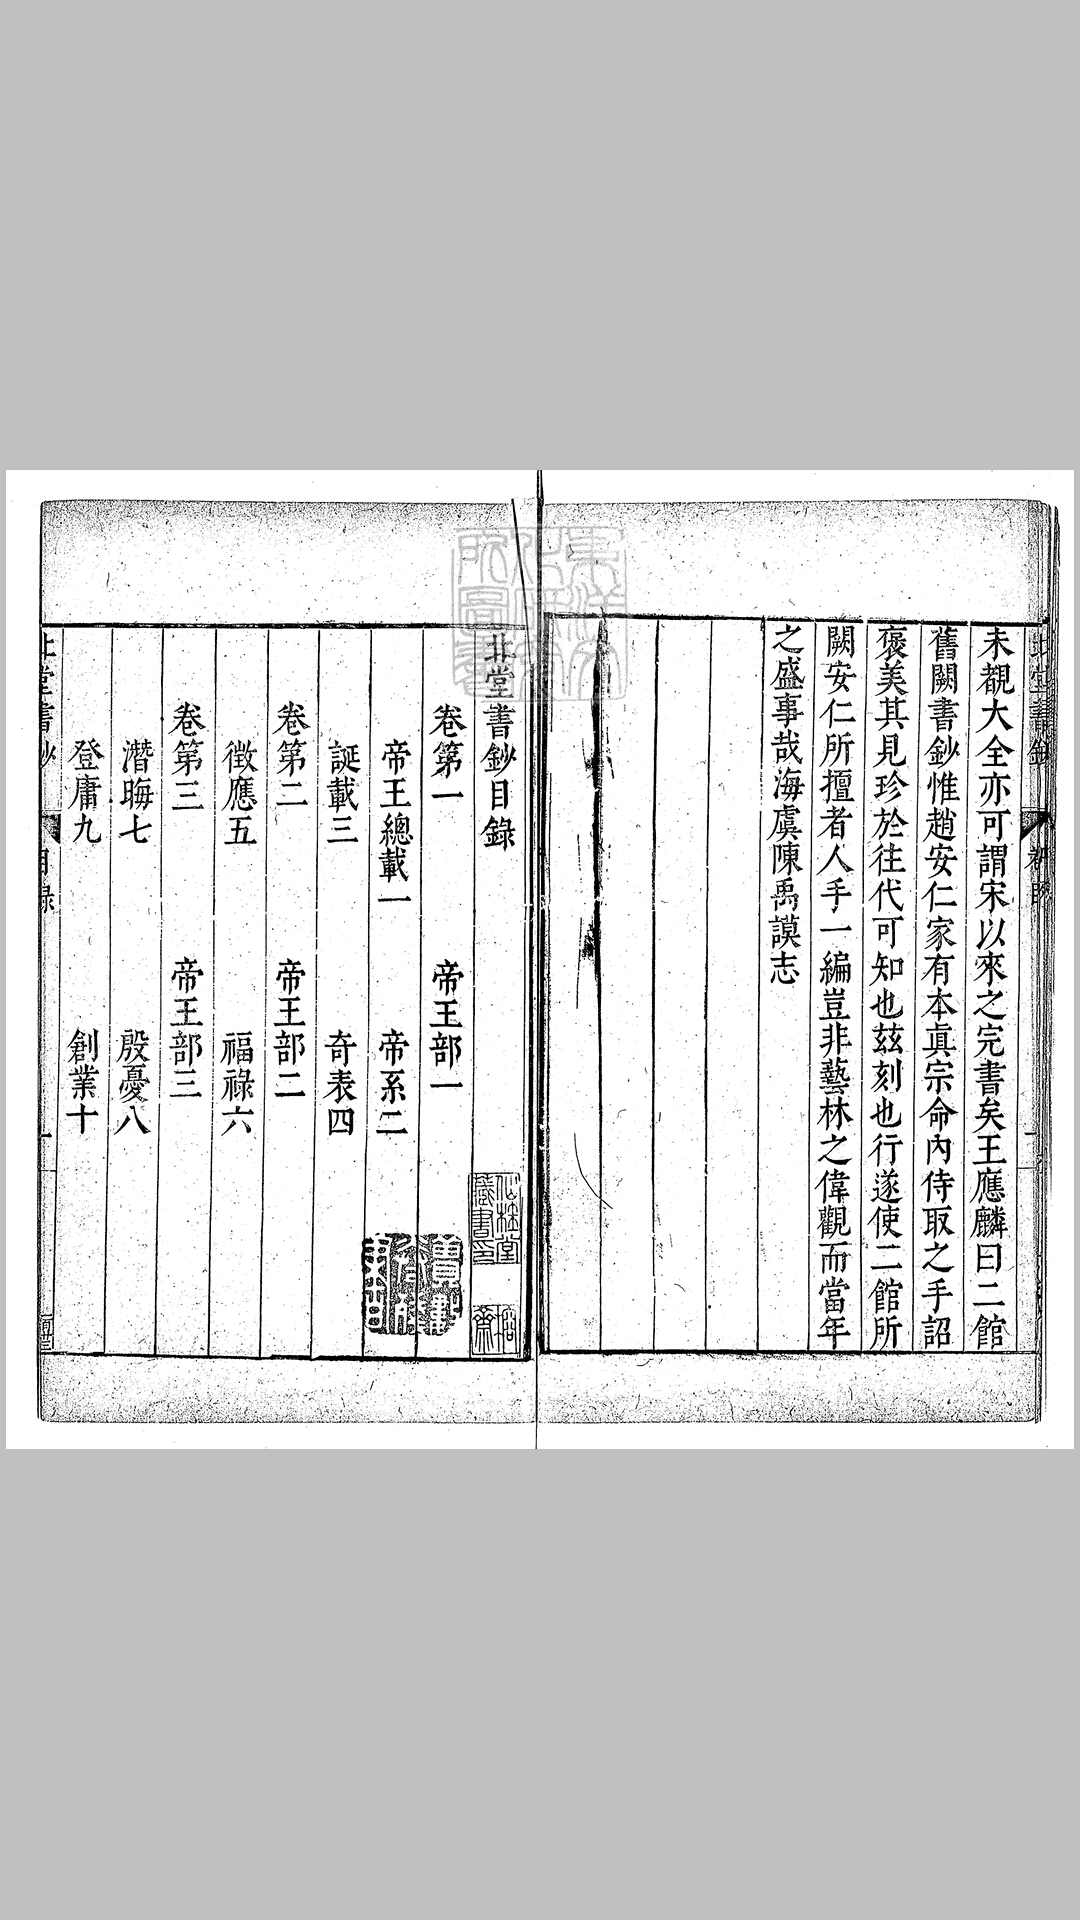 未覩大全亦可謂宋以來之完書矣王應麟曰二館
舊闕書鈔惟趙安仁家有本真宗命內侍取之手詔
褒美其見珍於往代可知也茲刻也行遂使二館所
闕安仁所擅者人手一編豈非藝林之偉觀而當年
之盛事哉海虞陳禹謨志
北堂書鈔目錄
卷第一 帝王部一
帝王總載一 帝系二
誕載三 奇表四
卷第二 帝王部二
徵應五 福祿六
卷第三 帝王部三
潛晦七 殷憂八
登庸九 創業十
北堂書鈔 目錄 一